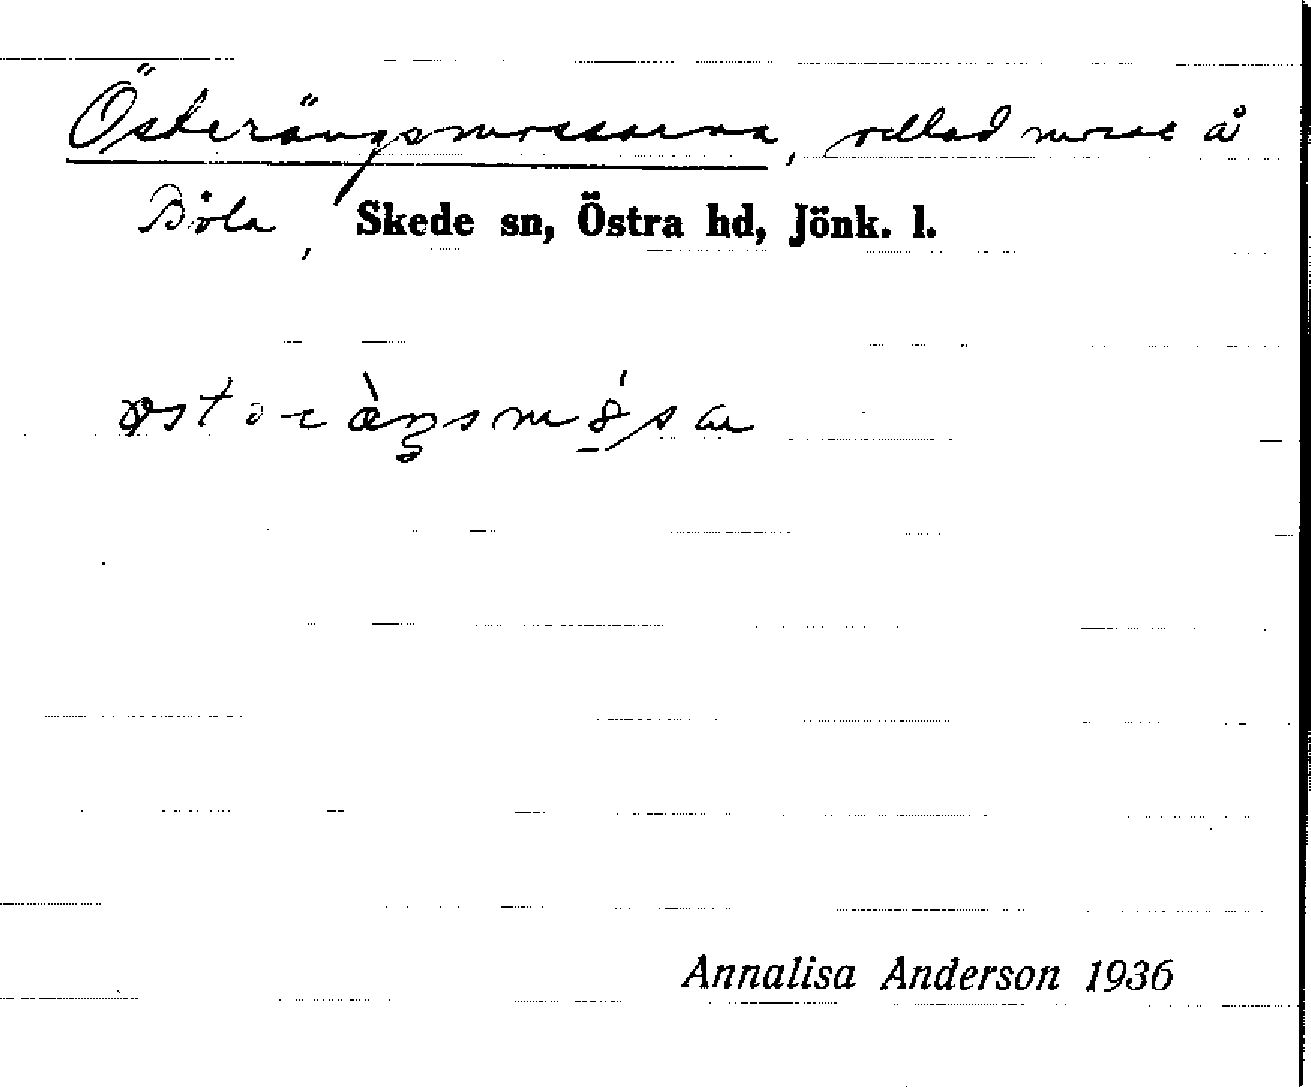 Österängsmossarna, odlad mosse å
Böla, Skede sn, Östra hd, Jönk. l.
Annalisa Anderson 1936